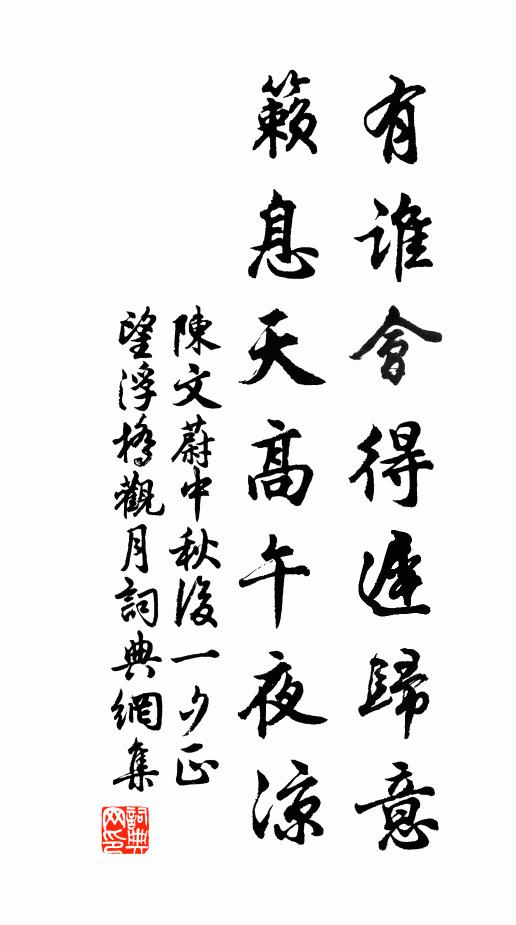 有誰會得遲歸意
籟息天高午夜涼
陳文蔚中秋後一夕正
望浮橋觀月詞典網集
詞典
网印